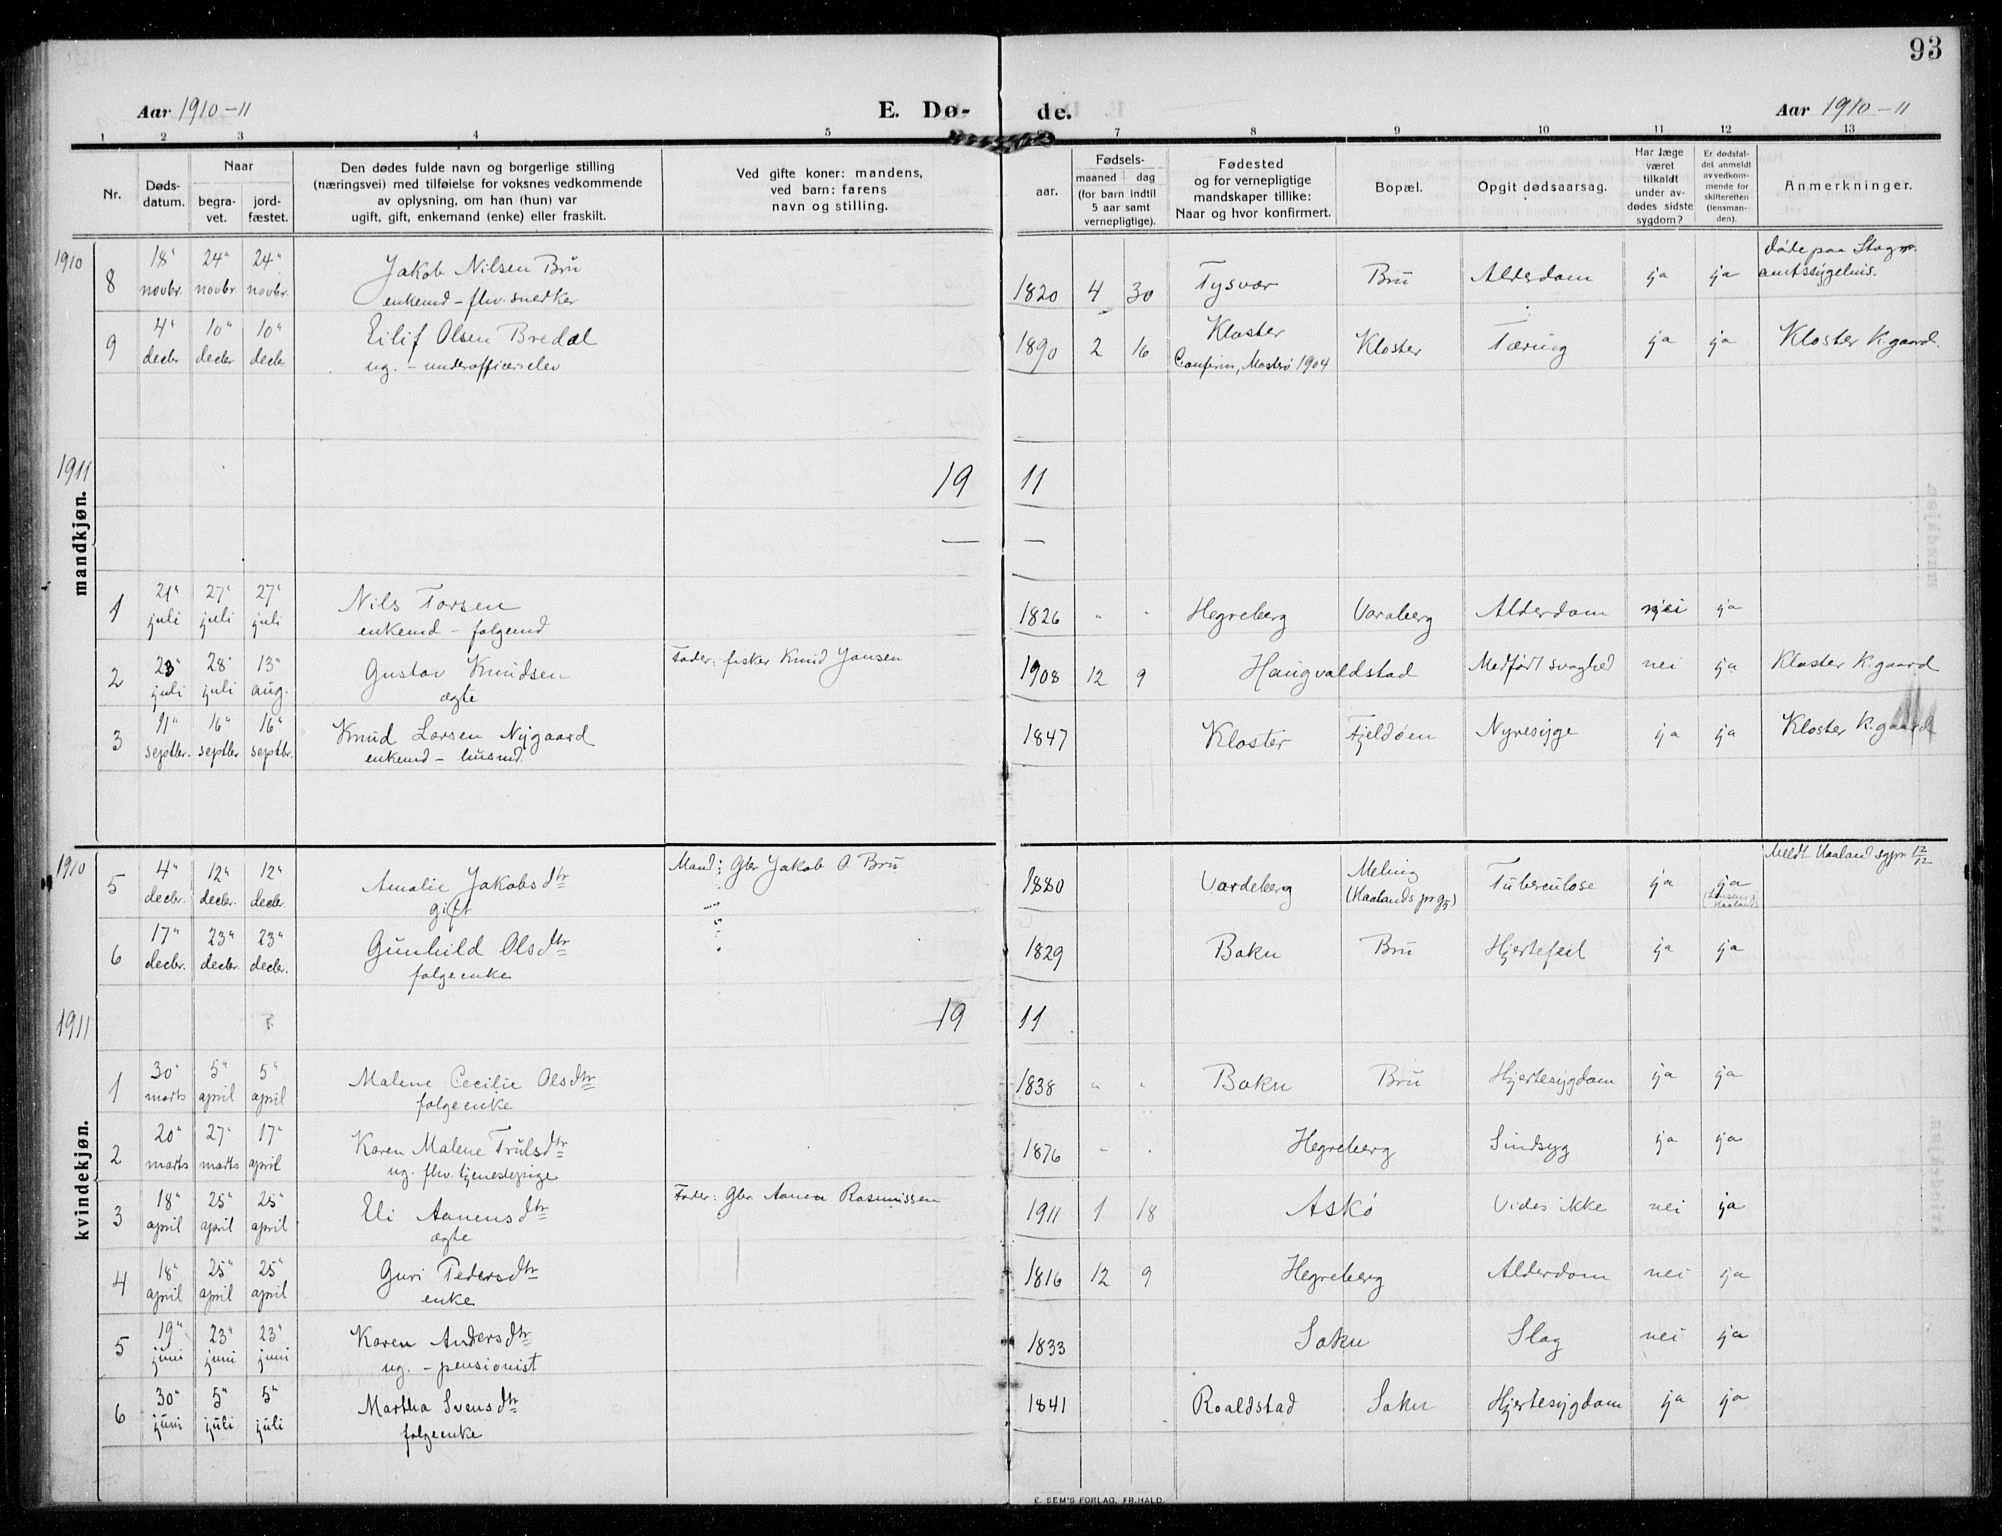 93
Aar 1910-11 E. Dø- de. Aar 1910-11
1 2 3 4 5 6 7 8 9 10 11 12 13
Nr.
Døds-
datum.
Naar
begra-
vet.
jord-
fæstet.
Den dødes fulde navn og borgerlige stilling
(næringsvei) med tilføielse for voksnes vedkommende
av oplysning, om han (hun) var
ugift, gift, enkemand (enke) eller fraskilt.
Ved gifte koner: mandens,
ved barn: farens
navn og stilling.
Fødsels-
aar.
maaned dag
(for barn indtil
5 aar samt
vernepligtige).
Fødested
og for vernepligtige
mandskaper tillike:
Naar og hvor konfirmert.
Bopæl.
Opgit dødsaarsag.
Har læge
været
tilkaldt
under av-
dødes sidste
sygdom?
Er dødsfal-
det anmeldt
av vedkom-
mende for
skifteretten
(lensman-
den).
Anmerkninger.
mandkjøn.
1910
8 18" novbr. 24" novbr 24" novbr. Jakob Nilsen Brü 1820 4 30 Tysvær Brü Alderdom ja ja døde paa Stav.
enkemd - fhv. snedker amtssygehus.
9 4" decbr 10" decbr 10" decbr Eilif Olsen Bredal 1890 2 16 Kloster Kloster Tæring ja ja Kloster K.gaard.
ug. - underofficerselev Confirm, Mosterø 1904
1911
19 11
— —
1 21" juli 27" juli 27" juli Nils Torsen 1826 " " Hegreberg Voraberg Alderdom nei ja
enkemd - folgemd
2 23" juli 28" juli 13" aug. Gustav Knudsen Fader: fisker Knud Jansen 1908 12 9 Haugvaldstad Medført svaghed nei ja Kloster K.gaard
ægte
3 11" septbr. 16" septbr 16" septbr. Knud Larsen Nygaard 1847 Kloster Fjeldøen Nyresyge ja ja Kloster K.gaard
enkemd - husmd.
kvindekjøn.
1910
5 4" decbr. 12" decbr. 12" decbr. Amalie Jakobsdtr Mand: Gbr Jakob O. Brü 1880 Vardeberg Meling Tuberculose ja ja Meldt Haaland sgpr 12/12
gift (Haalands prgj)
6 17" decbr. 23" decbr. 23" decbr. Gunhild Olsdtr 1829 Bokn Brü Hjertefeil ja ja
folgeenke
1911
19 11
1 30" marts 5" april 5" april Malene Cecilie Olsdtr 1838 " " Bokn Brü Hjertesygdom ja ja
folgeenke
2 20" marts 27" marts 17" april Karen Malene Trulsdtr 1876 " " Hegreberg Sindsyg ja ja
ug. fhv. tjenestepige
3 18" april 25" april 25" april Eli Aanensdtr Fader: Gbr. Aanen Rasmussen 1911 1 18 Askø Vides ikke nei ja
ægte
4 18" april 25" april 25" april Guri Pedersdtr 1816 12 9 Hegreberg Alderdom nei ja
enke
5 19" juni 23" juni 23" juni Karen Andersdtr 1833 Sokn Slag nei ja
ug. - pensionist
6 30" juni 5" juli 5" juli Martha Svensdtr 1841 Roaldstad Sokn Hjertesygdom ja ja
folgeenke
E. SEM'S FORLAG, FR.HALD